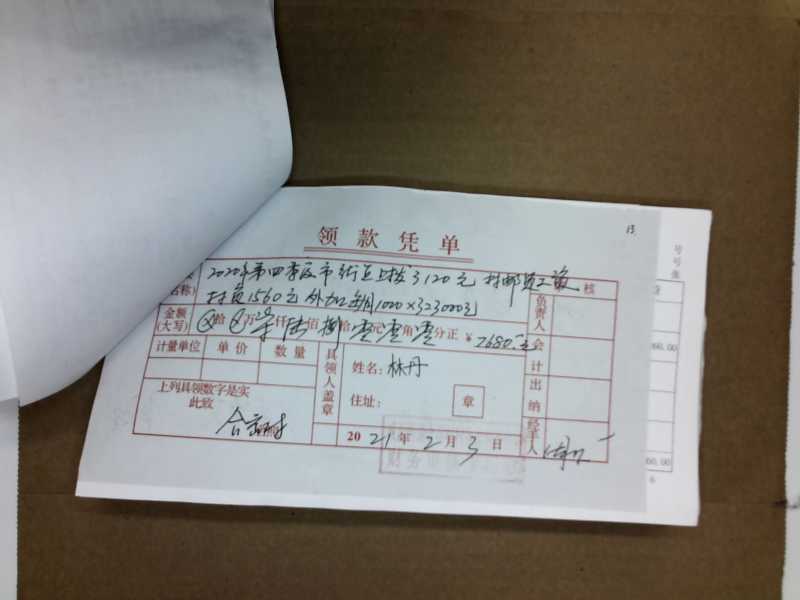 13
领款凭单
2020年第四季度市街道上拨3120元 村邮员工资
名称) 村负1560元 外加每月1000×3=3000元
核
金额
(大写) ⊗拾⊗万柒仟陆佰捌拾零元零角零分正 ¥7680.
计量单位 单价 数量
具领人盖章
姓名: 林丹
住址:
章
上列具领数字是实
此致
2021年2月3日
财务
负责人
会计
出纳
经手人
号
号
张
60.00
60.00
6